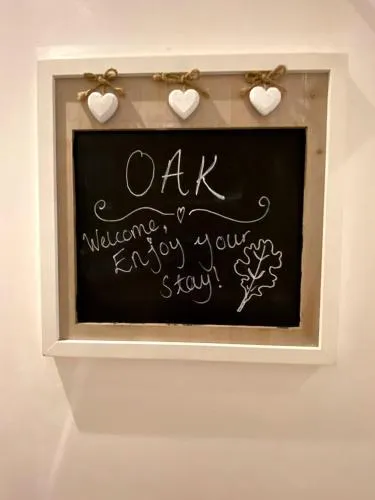 OAK
Welcome,
Enjoy your
Stay!